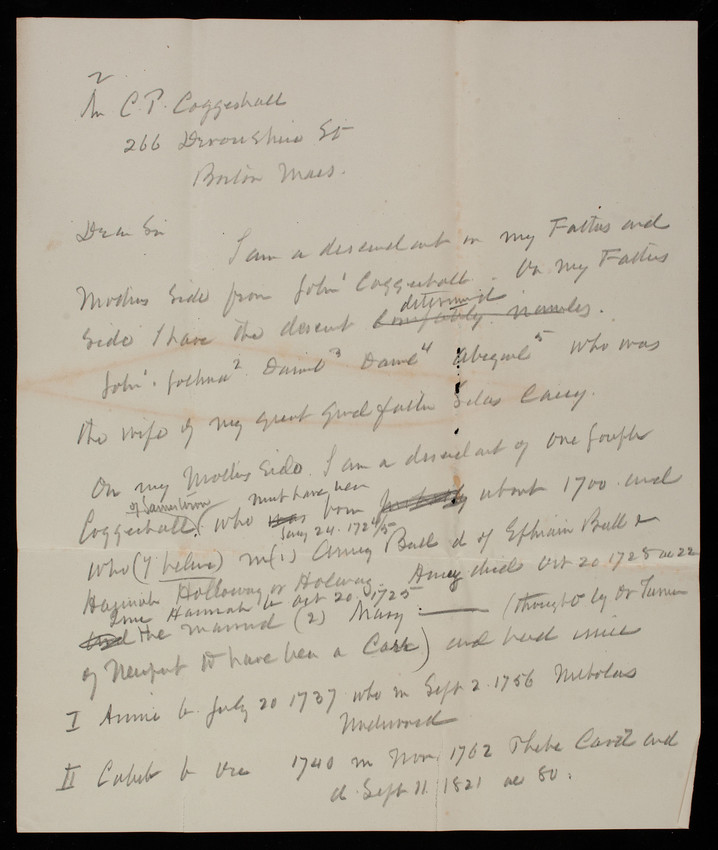 2
Mr C. P. Coggeshall
266 Devonshire St
Boston Mass.
Dear Sir
I am a descendant on my Fathers and
Mothers Side from John¹ Coggeshall. On my Fathers
determined
Side I have the descent names.
John¹. Joshua² Daniel³ Daniel⁴ Abigail⁵ who was
the wife of my great grandfather Silas Casey.
On my Mothers Side. I am a descendant of one Joseph
of Jamestown must have been
Coggeshall, who was born probably about 1700 and
Jany 24. 1724/5
who (I believe) m (1) Amey Bull d of Ephraim Bull &
Hannah Holloway or Holway. Amey died Oct 20 1728 ae 22
Hannah b Oct 20 1725
and the married (2) Mary — (thought by Dr Turner
of Newport to have been a Carr) and had issue
I Annie b July 20 1737 who m Sept 2. 1756 Nicholas
Underwood
II Caleb b Dec 1740 m Nov 1762 Phebe Carr and
d Sept 11 1821 ae 80.